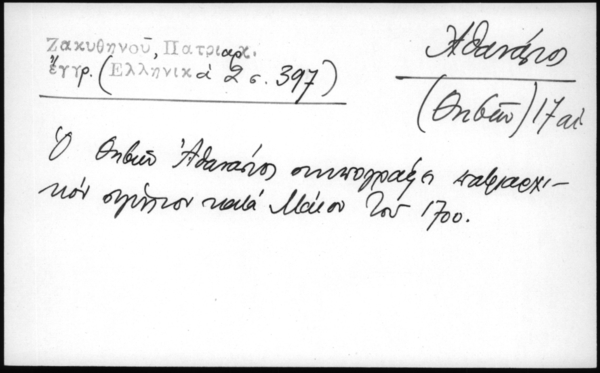 Ζακυθηνοῦ, Πατριαρχ.
ἔγγρ. (Ἑλληνικὰ 2 σ. 397)
Ἀθανάσιος
(Θηβῶν) 17 αἰ.
Ὁ Θηβῶν Ἀθανάσιος συνυπογράφει πατριαρχι-
κὸν σιγίλλιον κατὰ Μάιον τοῦ 1700.